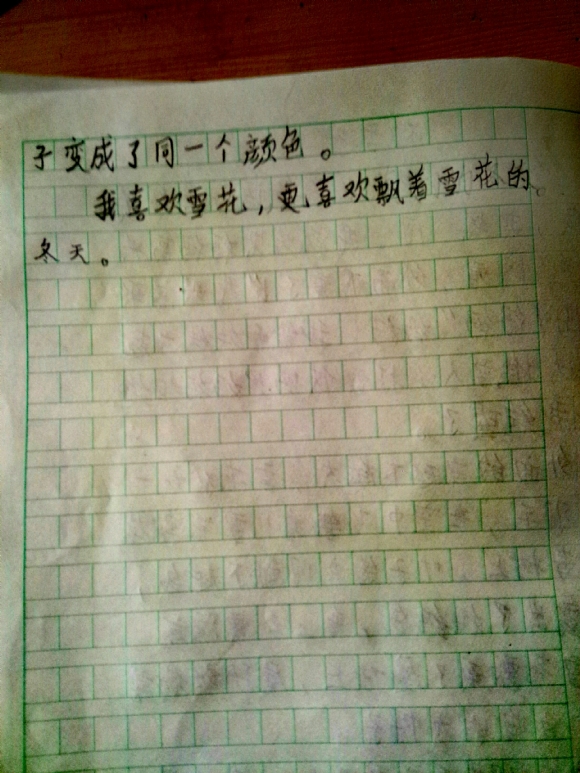 子变成了同一个颜色。
我喜欢雪花，更喜欢飘着雪花的
冬天。